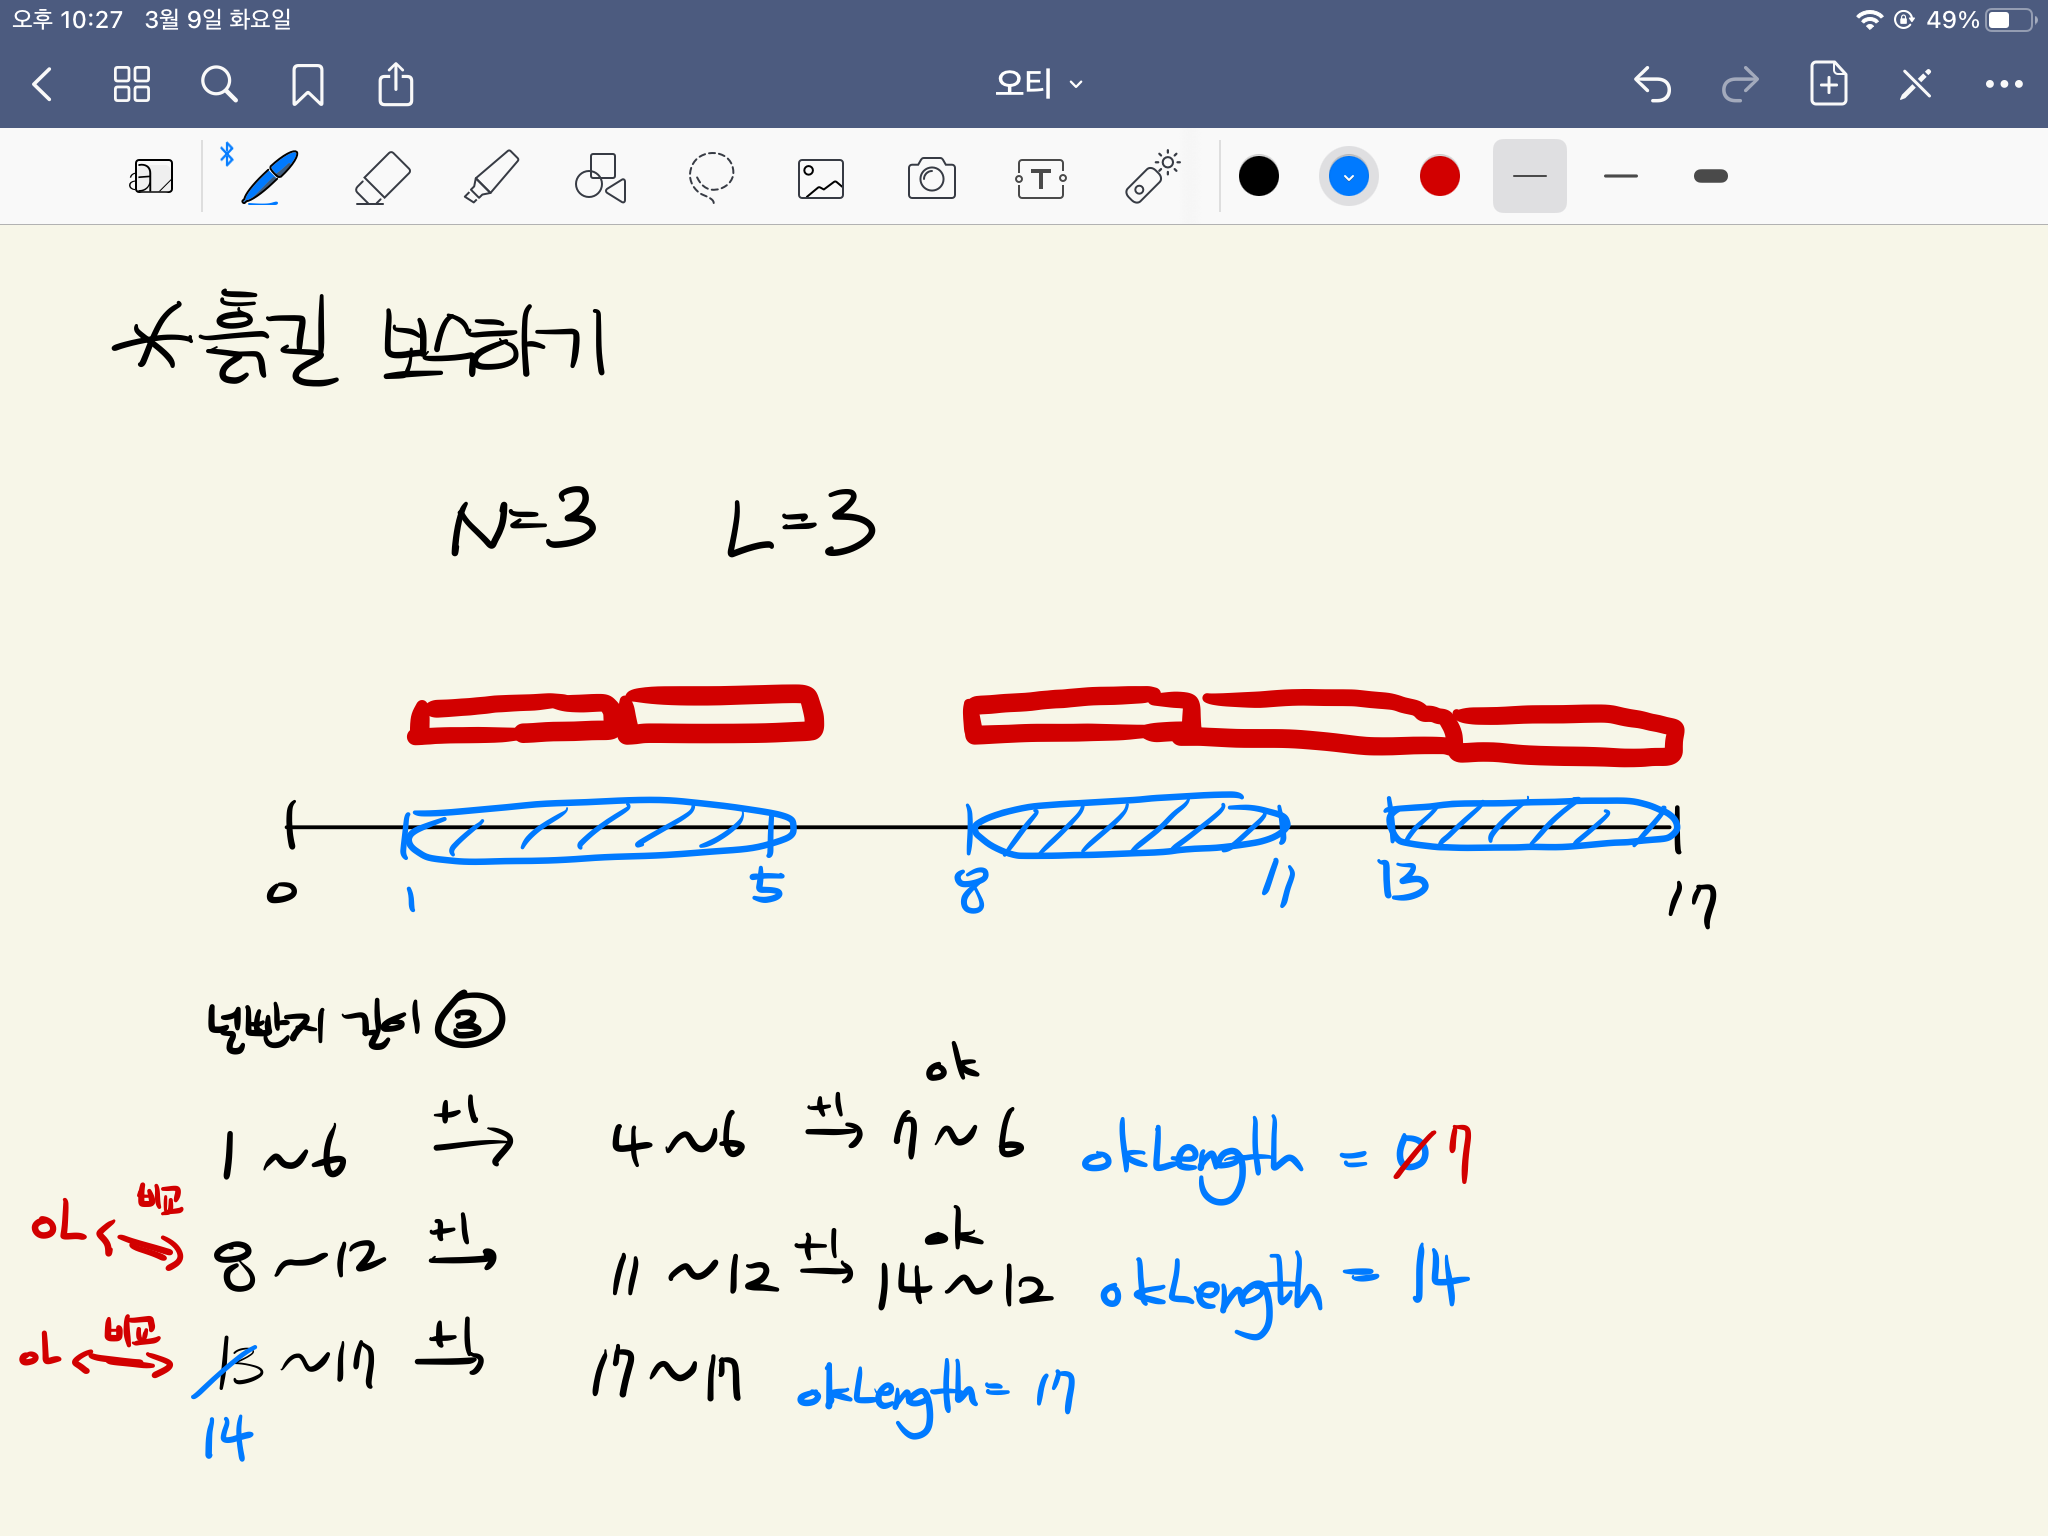 오후 10:27 3월 9일 화요일 49%
오티
T
*흙길 보수하기
N=3 L=3
0 1 5 8 11 13 17
널빤지 길이 ③
ok
1 ~ 6 +1 → 4 ~ 6 +1 → 7 ~ 6 okLength = 0 7
oL 비교 8 ~ 12 +1 → 11 ~ 12 +1 → ok 14 ~ 12 okLength = 14
oL 비교 13 ~ 17 +1 → 17 ~ 17 okLength = 17
14